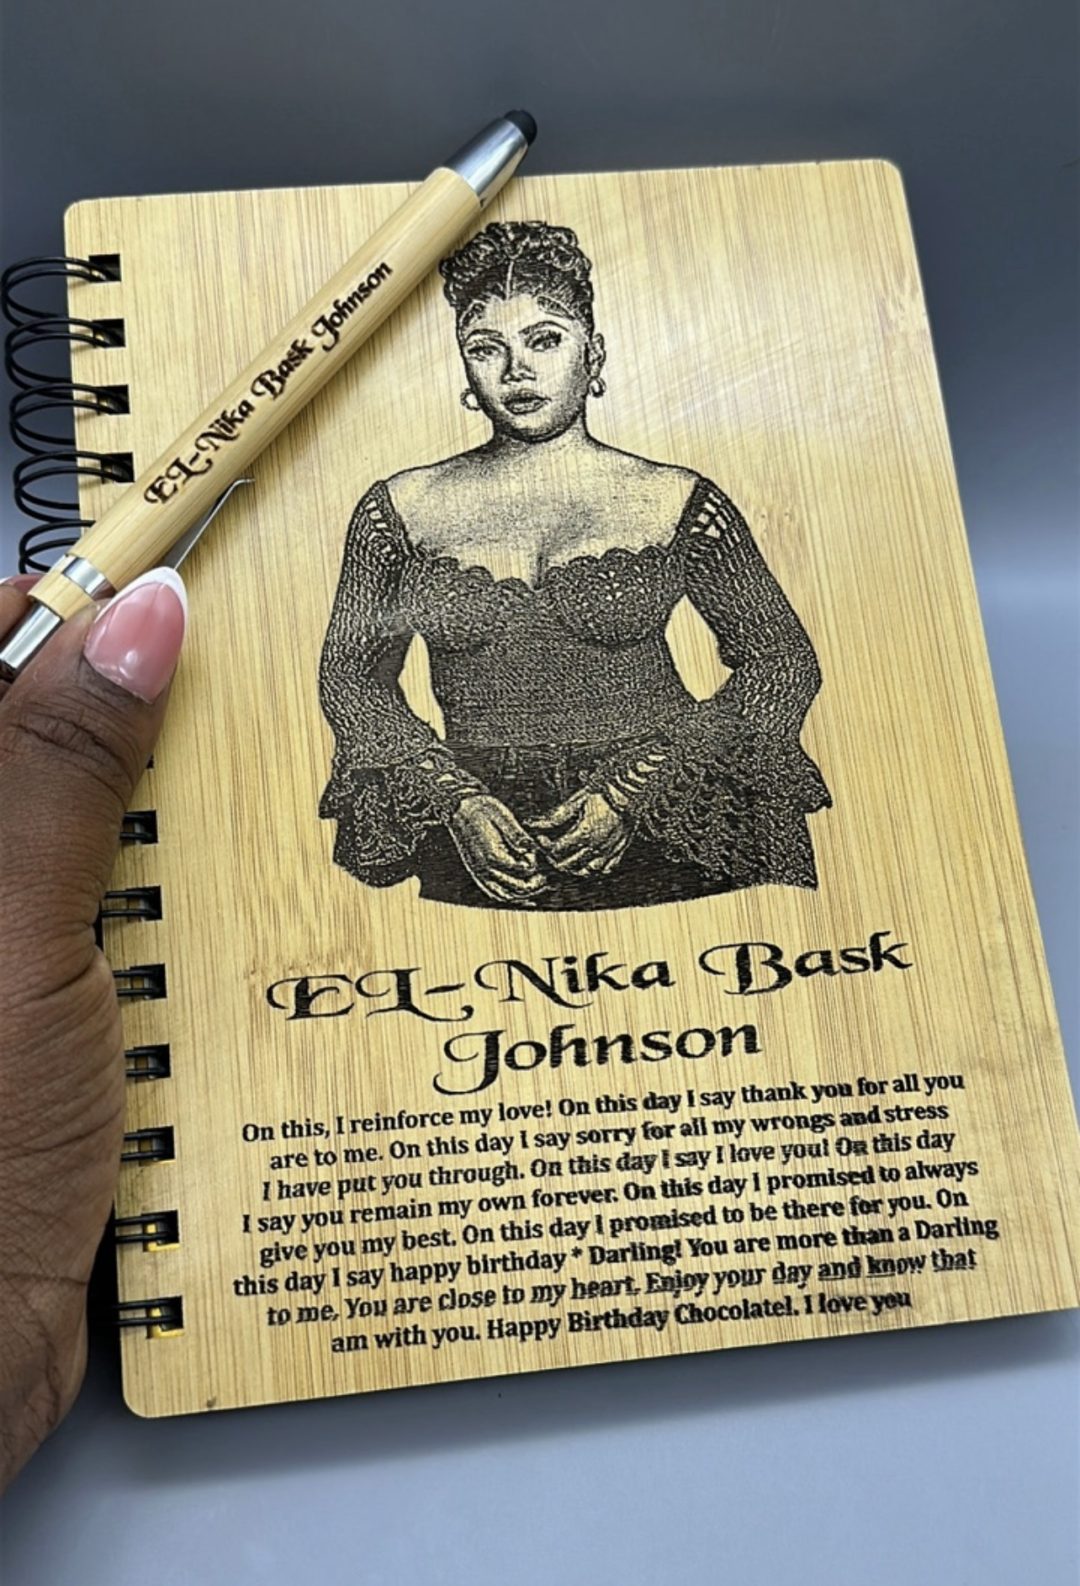 EL-Nika Bask Johnson
EL-Nika Bask
Johnson
On this, I reinforce my love! On this day I say thank you for all you
are to me. On this day I say sorry for all my wrongs and stress
I have put you through. On this day I say I love you! On this day
I say you remain my own forever. On this day I promised to always
give you my best. On this day I promised to be there for you. On
this day I say happy birthday * Darling! You are more than a Darling
to me, You are close to my heart. Enjoy your day and know that
am with you. Happy Birthday Chocolatel. I love you